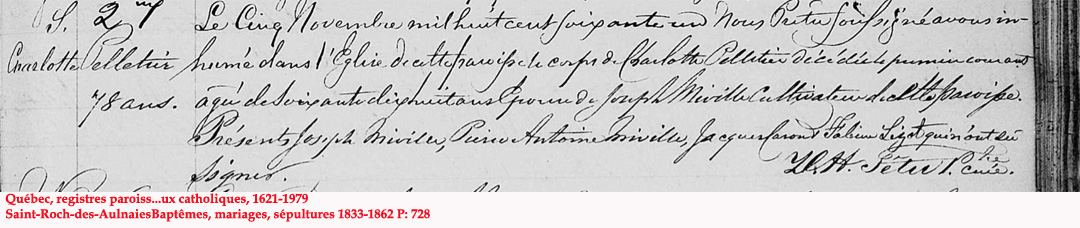 S. 2me
Charlotte Pelletier
78 ans.
Le Cinq Novembre mil huit cent soixante un Nous Prêtre soussigné avons in-
humé dans l'Eglise de cette paroisse le corps de Charlotte Pelletier décédée le premier courant
agée de soixante dix huit ans Epouse de Joseph Miville Cultivateur de cette paroisse.
Présents Joseph Miville, Pierre Antoine Miville, Jacques Caron & Fabien Lizot qui n'ont su
signer.
D. H. Têtu Ptre curé.
Québec, registres paroiss...ux catholiques, 1621-1979
Saint-Roch-des-AulnaiesBaptêmes, mariages, sépultures 1833-1862 P: 728